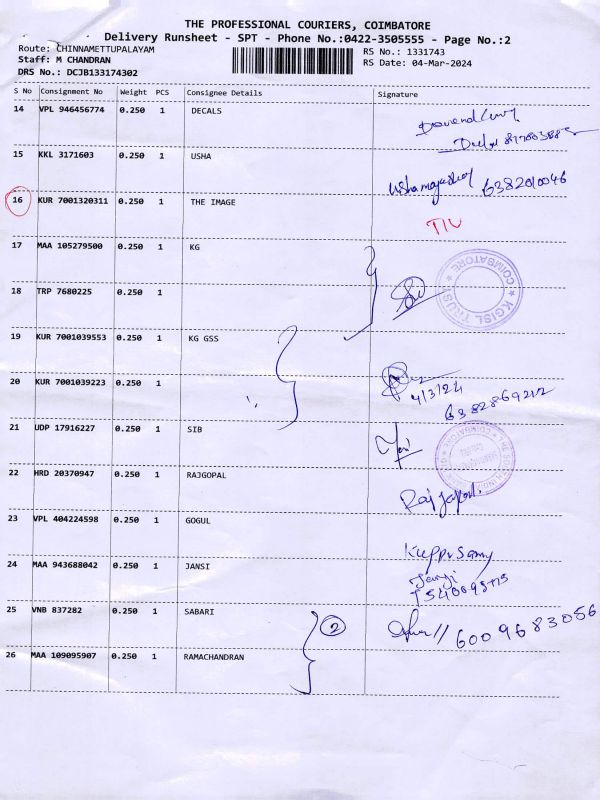 THE PROFESSIONAL COURIERS, COIMBATORE
Delivery Runsheet - SPT - Phone No.:0422-3505555 - Page No.:2
Route: CHINNAMETTUPALAYAM RS No.: 1331743
Staff: M CHANDRAN RS Date: 04-Mar-2024
DRS No.: DCJB133174302
S No Consignment No Weight PCS Consignee Details Signature
14 VPL 946456774 0.250 1 DECALS
15 KKL 3171603 0.250 1 USHA
6382010046
16 KUR 7001320311 0.250 1 THE IMAGE
17 MAA 105279500 0.250 1 KG
KGISL TRUST COIMBATORE
18 TRP 7680225 0.250 1
19 KUR 7001039553 0.250 1 KG GSS
20 KUR 7001039223 0.250 1
4/3/24
6382869212
21 UDP 17916227 0.250 1 SIB
22 HRD 20370947 0.250 1 RAJGOPAL
23 VPL 404224598 0.250 1 GOGUL
Kuppusamy
24 MAA 943688042 0.250 1 JANSI
25 VNB 837282 0.250 1 SABARI
2
6009683056
26 MAA 109095907 0.250 1 RAMACHANDRAN